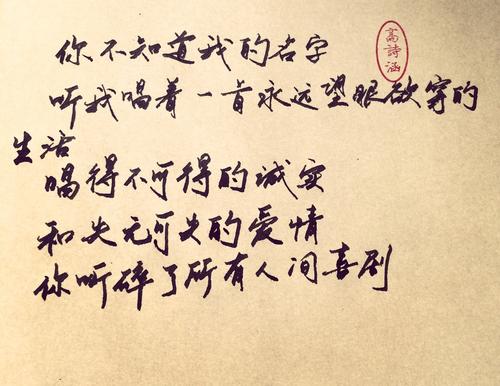 你不知道我的名字
高詩涵
听我唱着一首永远望眼欲穿的
生活
唱得不可得的诚实
和失无可失的爱情
你听碎了所有人间喜剧